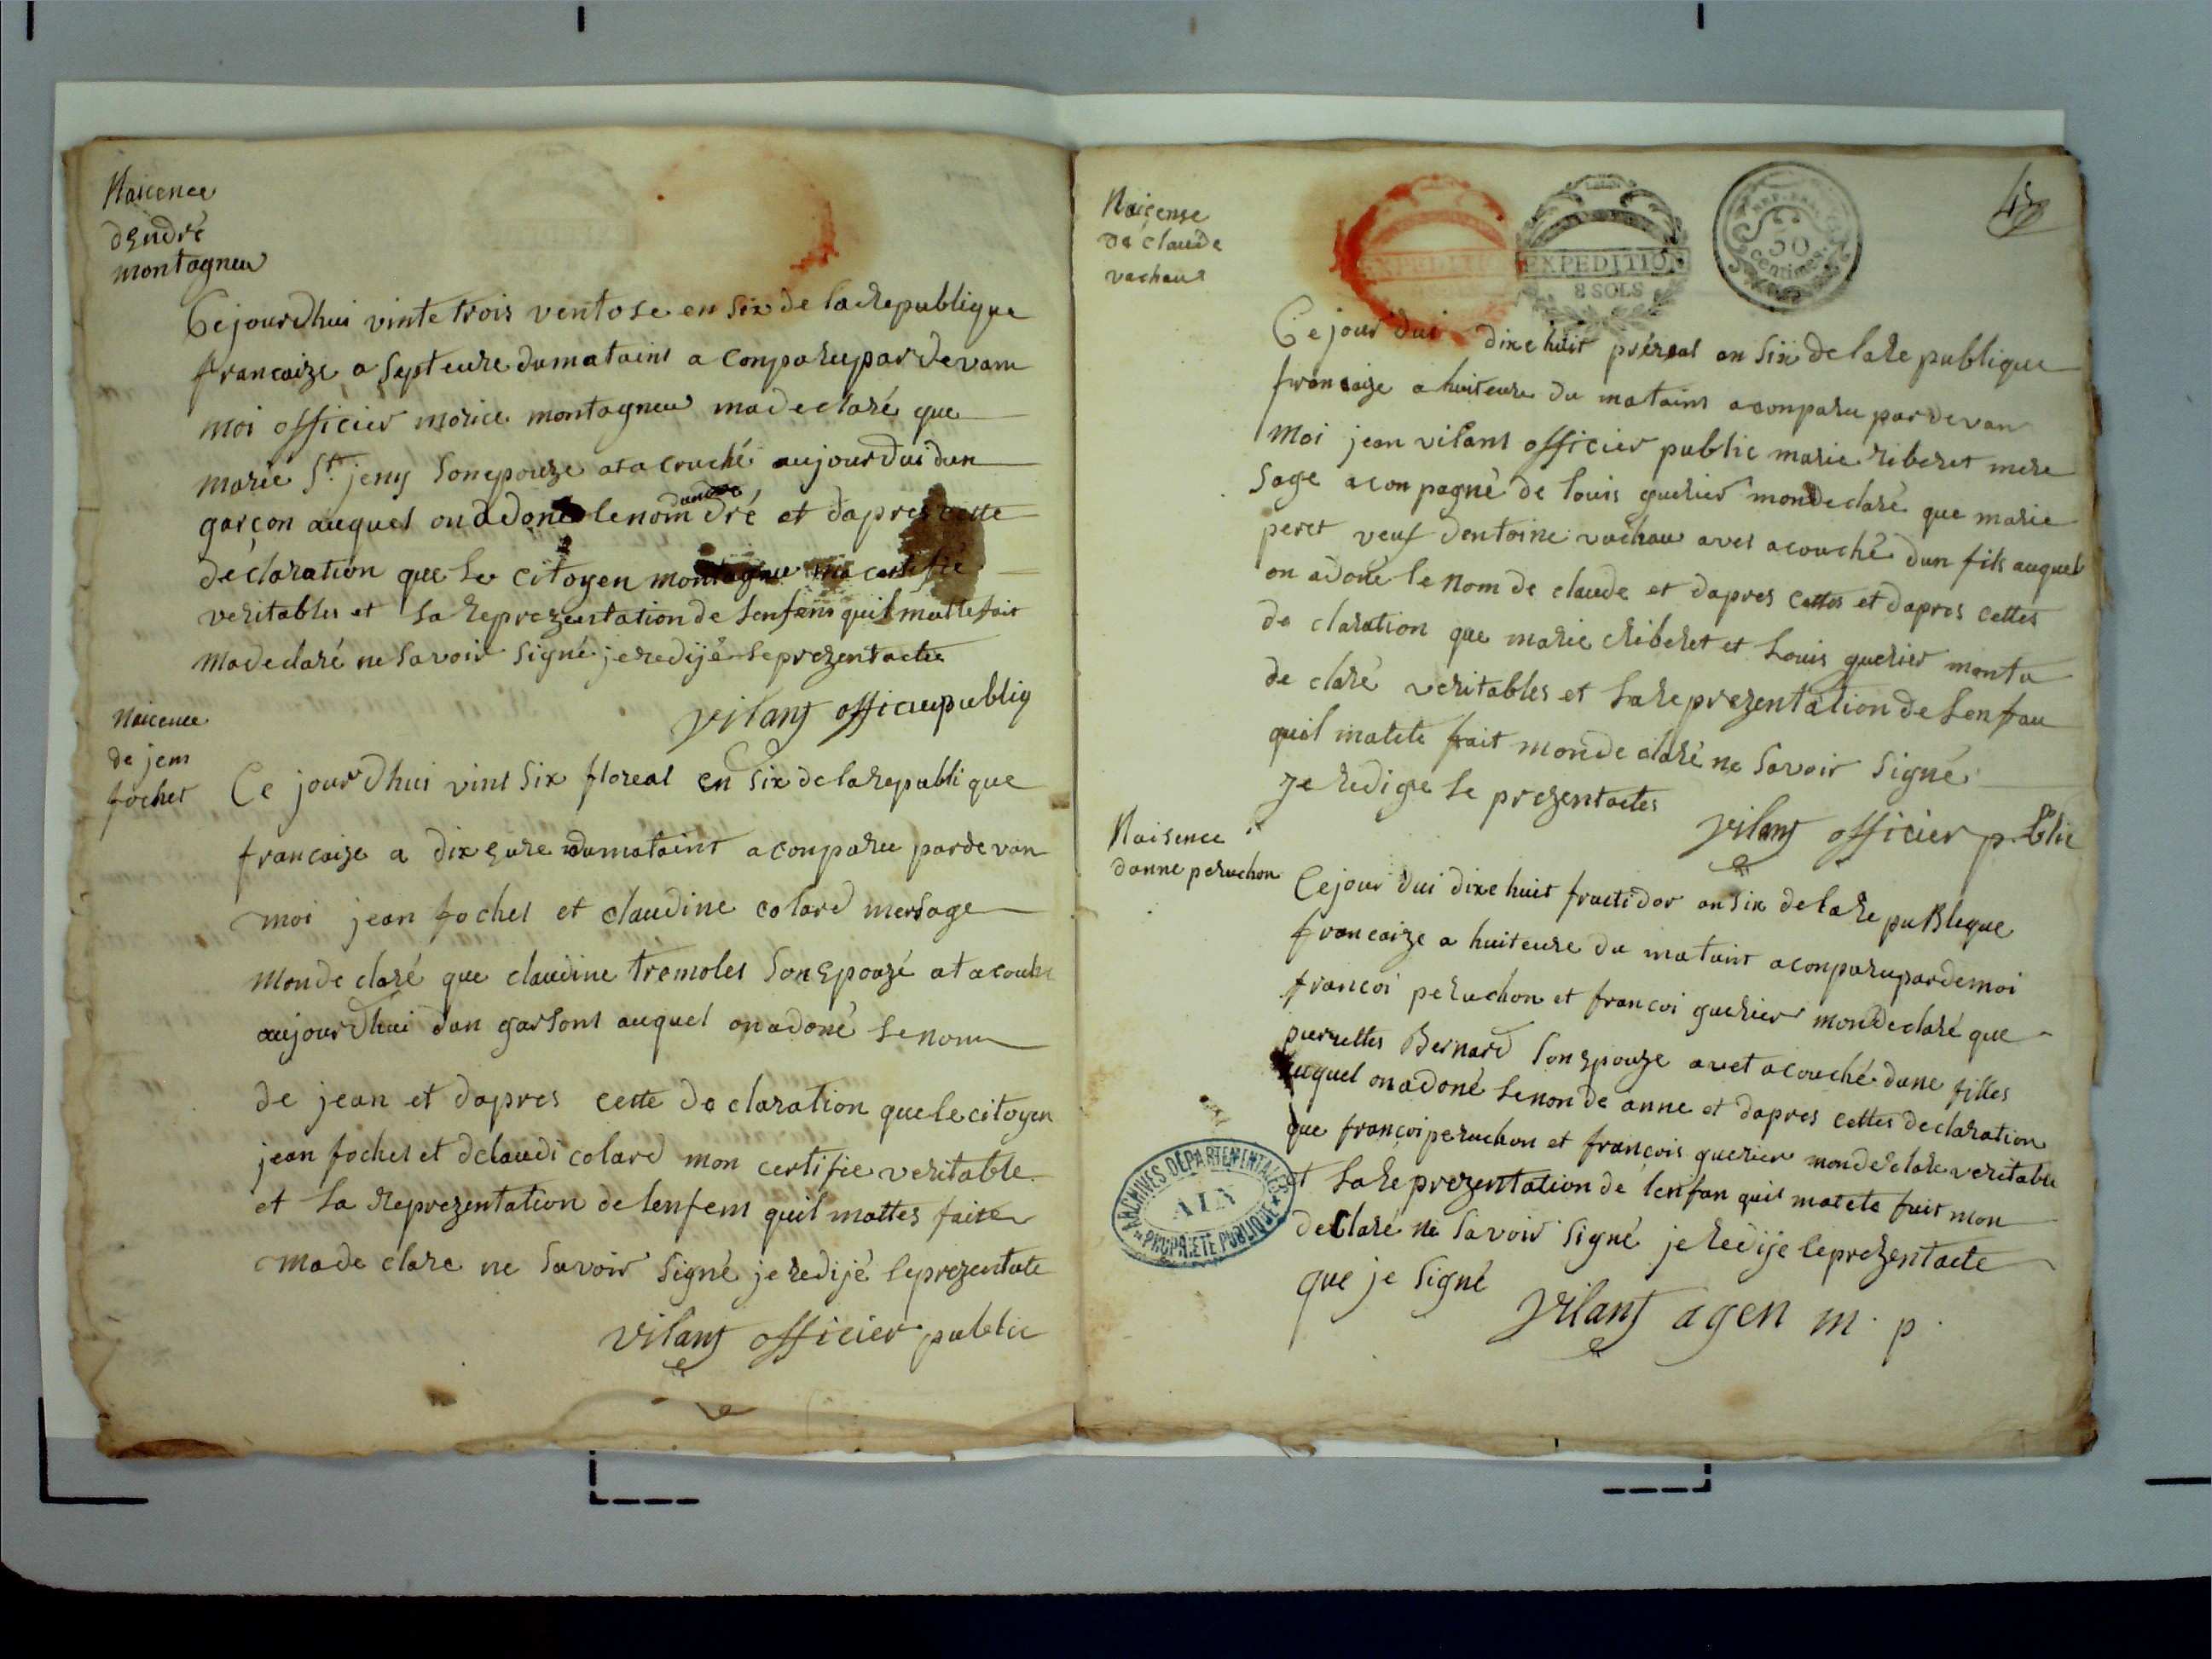 Naicence
dendré
montagneu
Ce jourdhui vinte trois ventose en six de la republique
francaize a septeure du mataint a conparu par devam
moi officier morice montagneu ma declaré que
marie St. jeny son epouze at acouché aujourdui dun
garçon auquel on a doné le nom dandré et dapres cette
déclaration que le citoyen montagneu ma certifié
veritables et la reprezentation de lenfens quil matte fait
ma declaré ne savoir signé je redijé le prezent actte
Vilant officier publiq
Naicence
de jem
fochet
Ce jourdhui vint six floreal en six de la republique
francaize a dix eure du mataint a conparu par devan
moi jean fochet et claudine colard mersage
mon de claré que claudine tremolet son epouzé at acouché
aujourdhui dun garsont auquel on a doné le nom
de jean et dapres cette de claration que le citoyen
jean fochet et de laudi colard mon certifie veritable
et la reprezentation de lenfent quil mattes faite
ma de clare ne savoir signé je redijé le prezentate
Vilant officier public
Naicense
de claude
vachaut
EXPEDITION
EXPEDITION
8 SOLS
50
centimes
Ce jour dui dixe huit préreal an six de la re publique
francaize a huiteure du mataint a conparu par devan
moi jean vilant officier public marie riberet mere
sage acon pagné de louis guerier mon declaré que marie
peret veuf dentoine vachau avet acouché dun fils auquel
on a doné le nom de claude et dapres cettes et dapres cettes
de claration que marie riberet et louis guerier monta
de claré veritables et la re prezentation de lenfan
quil matete fait mon de claré ne savoir signé
je redige le prezentactes
Vilant officier p. blic
Naisence
danne peruchon
Ce jour dui dixe huit fructidor an six de la re publeque
francaize a huiteure du mataint a conparu par de moi
francoi peruchon et francoi guerier mon declaré que
pierrettes Bernard son epouze avet acouché dune filles
auquel on a doné le non de anne et dapres cettes declaration
que françoi peruchon et françois guerier mon declare veritable
et la re prezentation de lenfan quil matete fait mon
declaré ne savoir signé je redije le prezent acte
que je signé
Vilant agen m. p.
ARCHIVES DEPARTEMENTALES
AIN
PROPRIETE PUBLIQUE